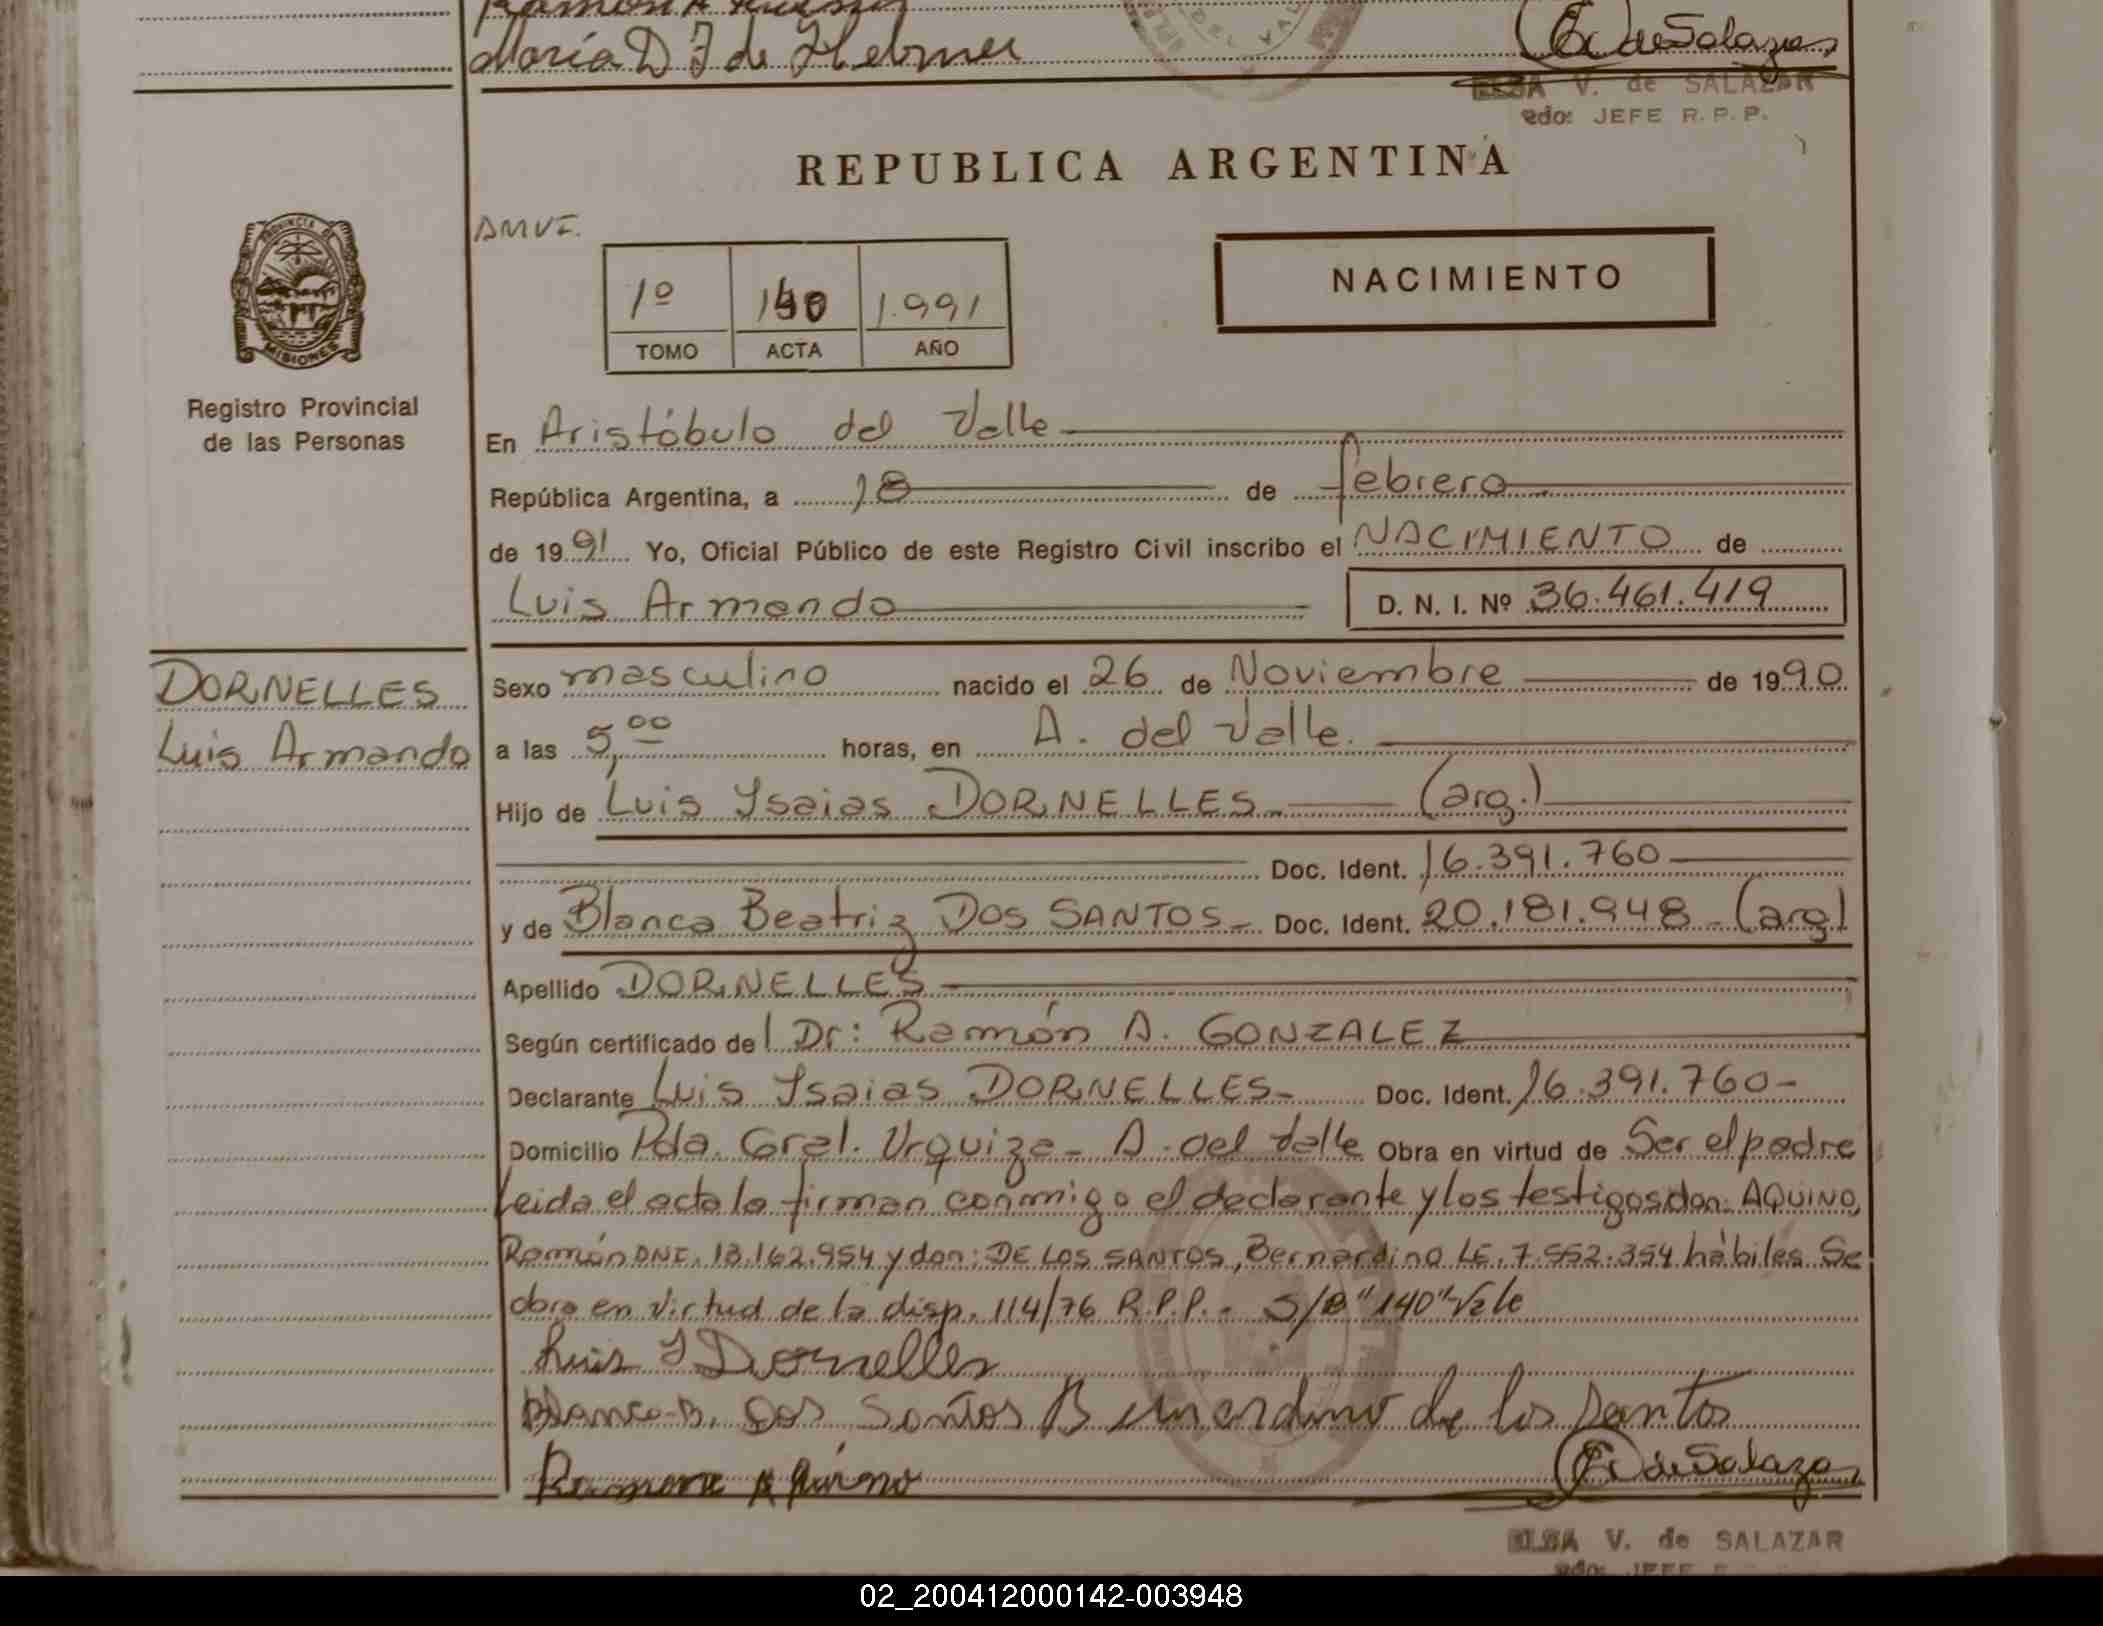 María D F de Hebner
E. de Salazar
ELSA V. de SALAZAR
edo: JEFE R.P.P.
REPUBLICA ARGENTINA
AMVE.
1º 140 1.991
TOMO ACTA AÑO
NACIMIENTO
PROVINCIA DE
MISIONES
Registro Provincial
de las Personas
En Aristóbulo del Valle
República Argentina, a 18 de febrero
de 1991 Yo, Oficial Público de este Registro Civil inscribo el NACIMIENTO de
Luis Armando D. N. I. Nº 36.461.419
DORNELLES
Luis Armando
Sexo masculino nacido el 26 de Noviembre de 1990
a las 5,00 horas, en A. del Valle.
Hijo de Luis Ysaias DORNELLES- (arg.)
Doc. Ident. 16.391.760
y de Blanca Beatriz DOS SANTOS- Doc. Ident. 20.181.948-(arg)
Apellido DORNELLES
Según certificado del Dr: Ramón A. GONZALEZ
Declarante Luis Ysaias DORNELLES- Doc. Ident. 16.391.760-
Domicilio Pda. Gral. Urquiza- A. del Valle Obra en virtud de Ser el padre
Leida el acta la firman conmigo el declarante y los testigos don: AQUINO,
Ramón DNI. 13.162.954 y don: DE LOS SANTOS, Bernardino LE. 7.552.354 hábiles. Se
obra en virtud de la disp. 114/76 R.P.P.- S/B "140" Vale
Luis Y Dornelles
Blanca B. Dos Santos Bernardino de los Santos
Ramon Aquino E. de Salazar
ELSA V. de SALAZAR
02_200412000142-003948